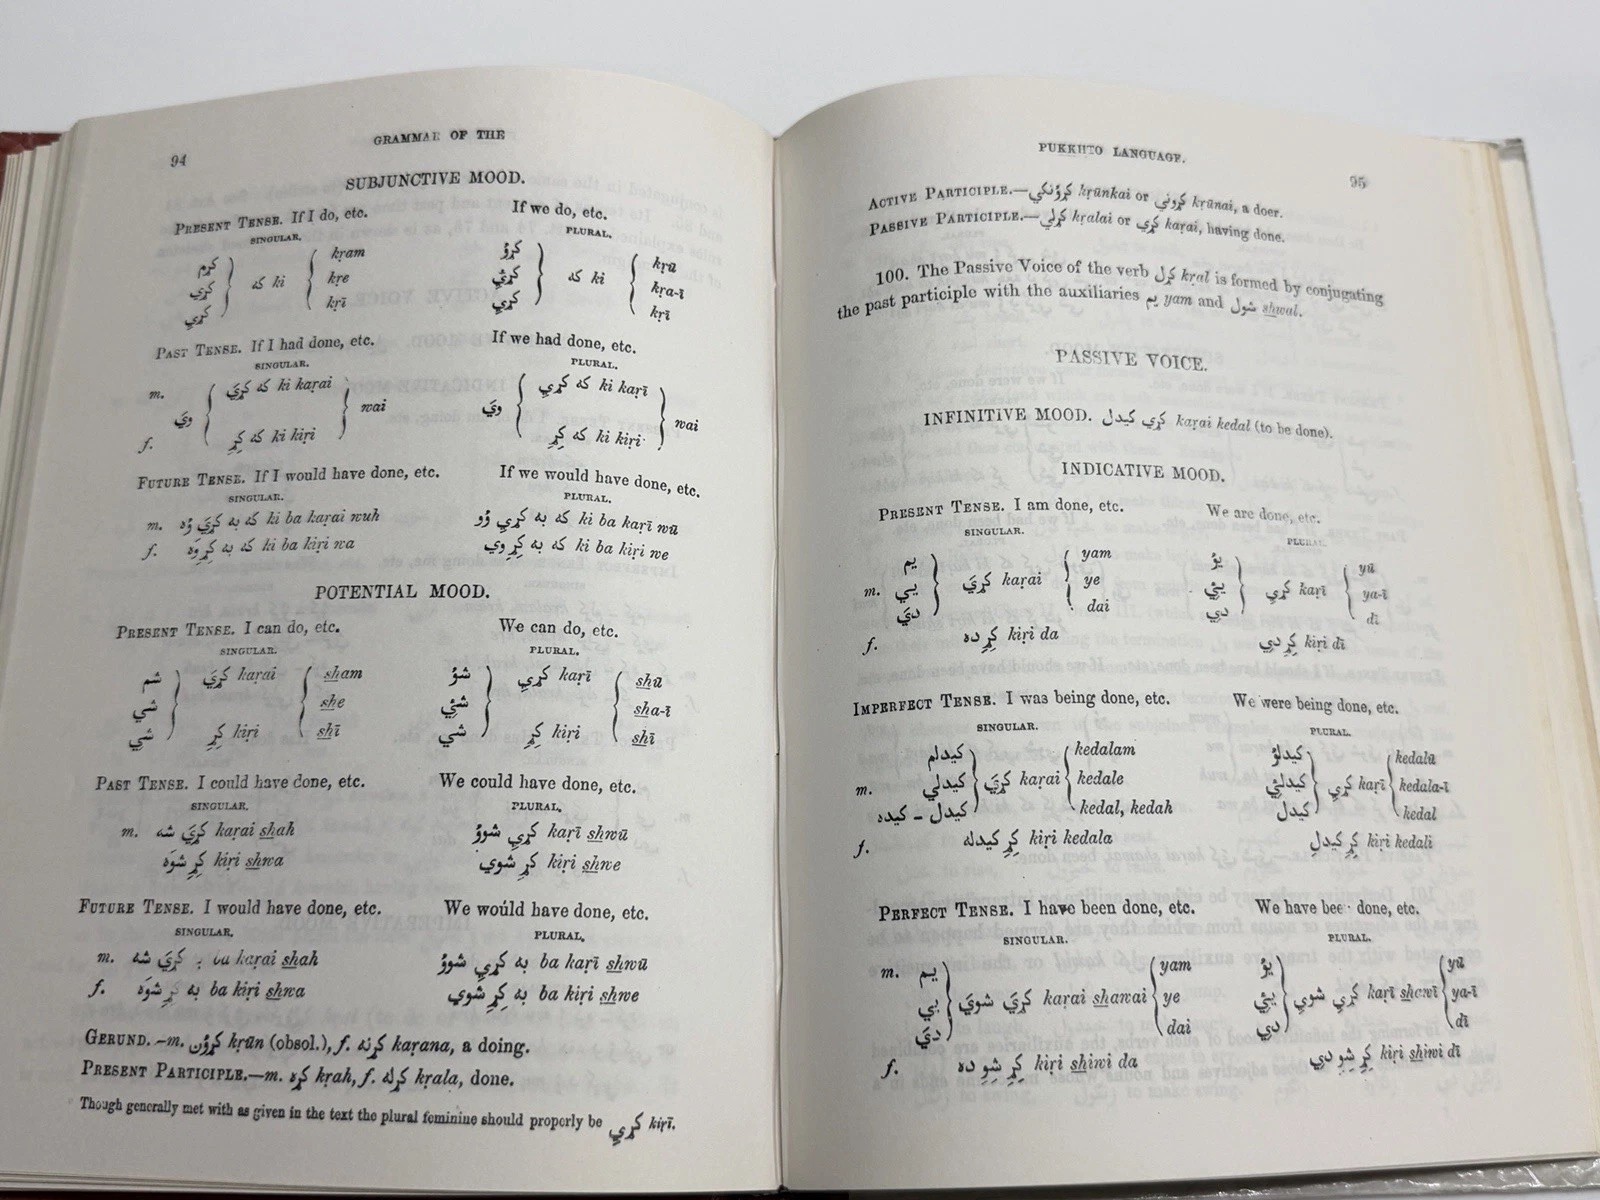 94
GRAMMAR OF THE
SUBJUNCTIVE MOOD.
PRESENT TENSE. If I do, etc. If we do, etc.
SINGULAR. PLURAL.
کړم kṛam کړۇ kṛū
کړي که ki kṛe کړئِي که ki kṛa-ī
کړِي kṛī کړِي kṛī
PAST TENSE. If I had done, etc. If we had done, etc.
SINGULAR. PLURAL.
m. کړَي که ki karai کړِي که ki kaṛī
وَي wai وَي wai
f. کِړِ که ki kiṛi کِړِ که ki kiṛi
FUTURE TENSE. If I would have done, etc. If we would have done, etc.
SINGULAR. PLURAL.
m. که به کړَي وُه ki ba kaṛai wuh که به کړِي وُو ki ba kaṛī wū
f. که به کِړِ وَه ki ba kiṛi wa که به کِړِ وي ki ba kiṛi we
POTENTIAL MOOD.
PRESENT TENSE. I can do, etc. We can do, etc.
SINGULAR. PLURAL.
شم کړَي kaṛai sham شۇ کړِي kaṛī shū
شي she شئِي sha-ī
شِي کِړِ kiṛi shī شِي کِړِ kiṛi shī
PAST TENSE. I could have done, etc. We could have done, etc.
SINGULAR. PLURAL.
m. کړَي شه karai shah کړِي شوۇ kaṛī shwū
کِړِ شوَه kiṛi shwa کِړِ شوي kiṛi shwe
FUTURE TENSE. I would have done, etc. We would have done, etc.
SINGULAR. PLURAL.
m. به کړَي شه ba kaṛai shah به کړِي شوۇ ba kaṛī shwū
f. به کِړِ شوَه ba kiṛi shwa به کِړِ شوي ba kiṛi shwe
GERUND.—m. کړۇن kṛūn (obsol.), f. کړنه kaṛana, a doing.
PRESENT PARTICIPLE.—m. کړه kṛah, f. کړله kṛala, done.
Though generally met with as given in the text the plural feminine should properly be کِړِي kiṛī.
PUKKHTO LANGUAGE.
95
ACTIVE PARTICIPLE.—کړۇنکي kṛūnkai or کړۇني kṛūnai, a doer.
PASSIVE PARTICIPLE.—کړلي kṛalai or کړي kaṛai, having done.
100. The Passive Voice of the verb کړل kṛal is formed by conjugating
the past participle with the auxiliaries يم yam and شول shwal.
PASSIVE VOICE.
INFINITIVE MOOD. کړي کيدل kaṛai kedal (to be done).
INDICATIVE MOOD.
PRESENT TENSE. I am done, etc. We are done, etc.
SINGULAR. PLURAL.
يم yam يۇ yū
m. يي کړَي kaṛai ye يئِي کړِي kaṛī ya-ī
دَي dai دِي dī
f. کِړِ ده kiṛi da کِړِ دِي kiṛi dī
IMPERFECT TENSE. I was being done, etc. We were being done, etc.
SINGULAR. PLURAL.
کيدلم kedalam کيدلۇ kedalū
m. کيدلي کړَي kaṛai kedale کيدلئِي کړِي kaṛī kedala-ī
کيدل - کيده kedal, kedah کيدل kedal
f. کِړِ کيدله kiṛi kedala کِړِ کيدلِ kiṛi kedali
PERFECT TENSE. I have been done, etc. We have been done, etc.
SINGULAR. PLURAL.
m. يم yam يۇ yū
يي کړَي شوَي karai shawai ye يئِي کړِي شوِي kaṛī shawī ya-ī
دَي dai دِي dī
f. کِړِ شِوِ ده kiṛi shiwi da کِړِ شِوِ دِي kiṛi shiwi dī